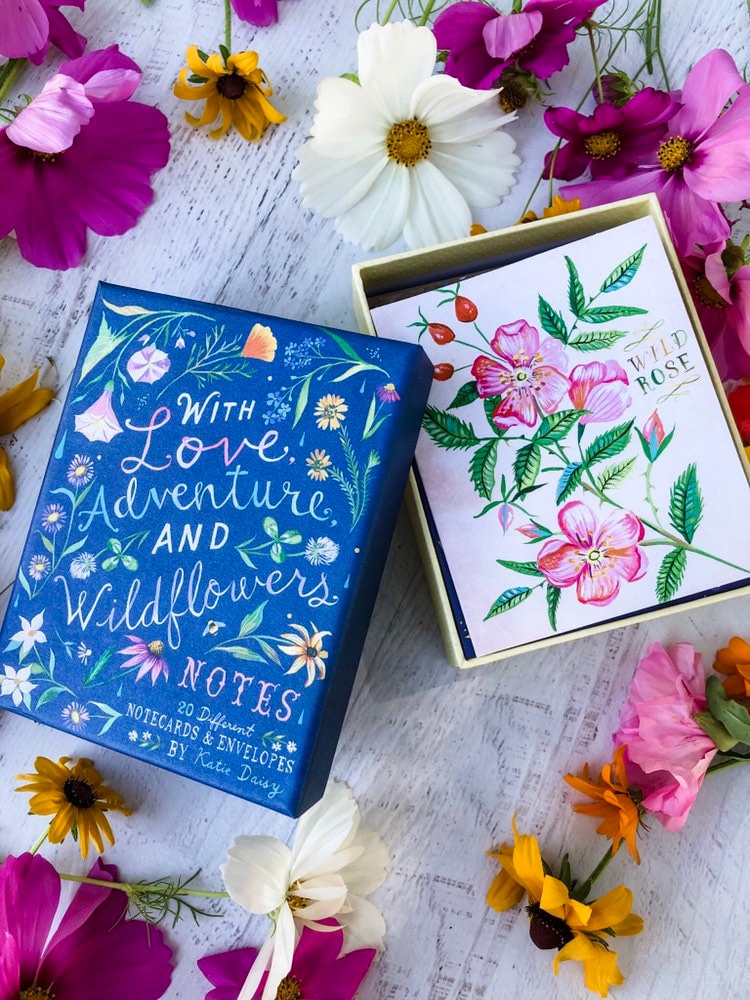 WITH
Love,
Adventure,
AND
Wildflowers
NOTES
20 Different
NOTECARDS & ENVELOPES
BY Katie Daisy
WILD
ROSE